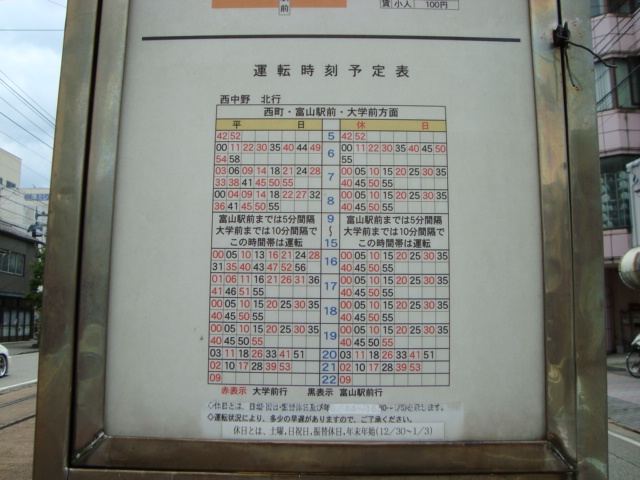 前
賃 小人 100円
運転時刻予定表
西中野 北行
西町・富山駅前・大学前方面
平 日 休 日
42 52 5 42 52
00 11 22 30 35 40 44 49 6 00 11 22 30 35 40 45 50
54 58 55
03 06 09 14 18 21 24 28 7 00 05 10 15 20 25 30 35
33 38 41 45 50 55 40 45 50 55
00 04 09 14 18 22 27 32 8 00 05 10 15 20 25 30 35
36 41 45 50 55 40 45 50 55
富山駅前までは5分間隔 9 富山駅前までは5分間隔
大学前までは10分間隔で 〜 大学前までは10分間隔で
この時間帯は運転 15 この時間帯は運転
00 05 10 13 16 21 24 28 16 00 05 10 15 20 25 30 35
31 35 40 43 47 52 56 40 45 50 55
01 06 11 16 21 26 31 36 17 00 05 10 15 20 25 30 35
41 46 51 55 40 45 50 55
00 05 10 15 20 25 30 35 18 00 05 10 15 20 25 30 35
40 45 50 55 40 45 50 55
00 05 10 15 20 25 30 35 19 00 05 10 15 20 25 30 35
40 45 50 55 40 45 50 55
03 11 18 26 33 41 51 20 03 11 18 26 33 41 51
02 10 17 28 39 53 21 02 10 17 28 39 53
09 22 09
赤表示 大学前行 黒表示 富山駅前行
◇休日とは、日曜・祝日・振替休日及び年
◇運転状況により、多少の早遅がありますので、ご了承ください。
休日とは、土曜,日祝日,振替休日,年末年始(12/30〜1/3)